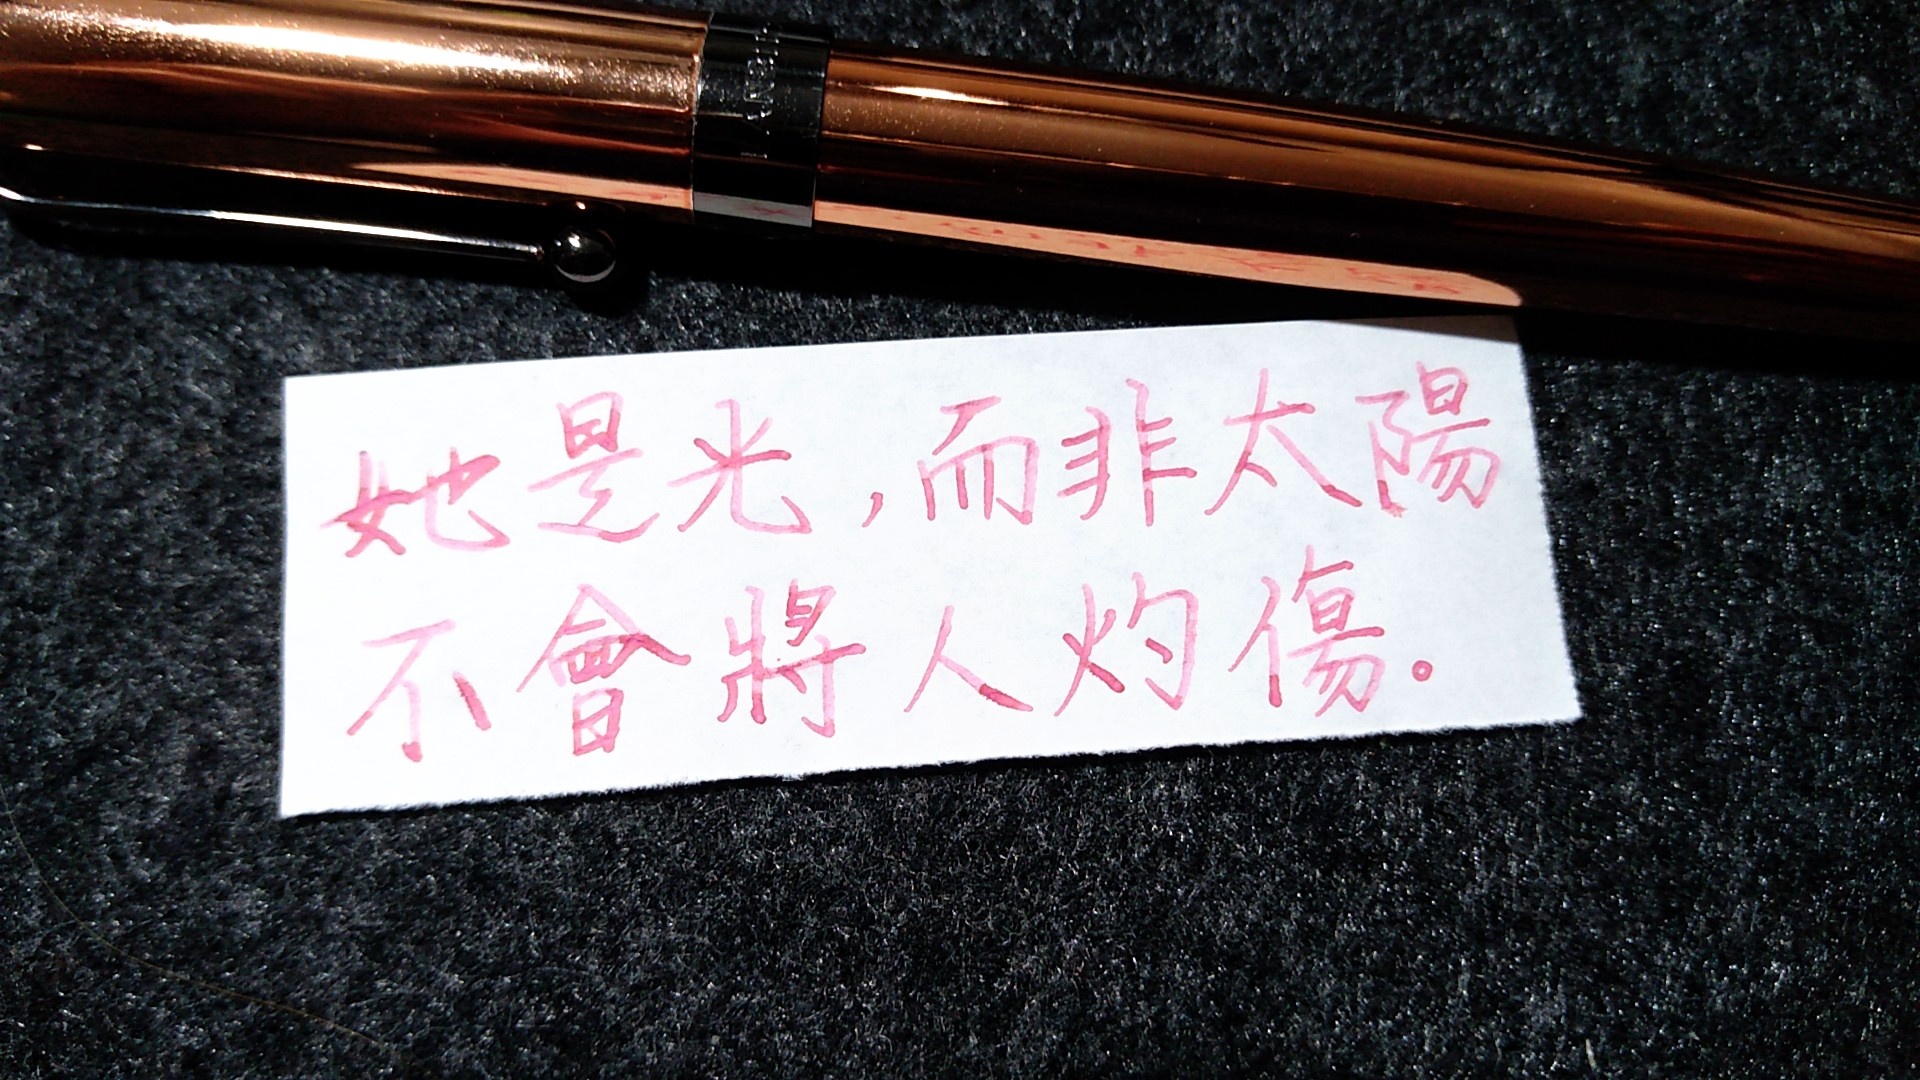 她是光,而非太陽
不會將人灼傷。